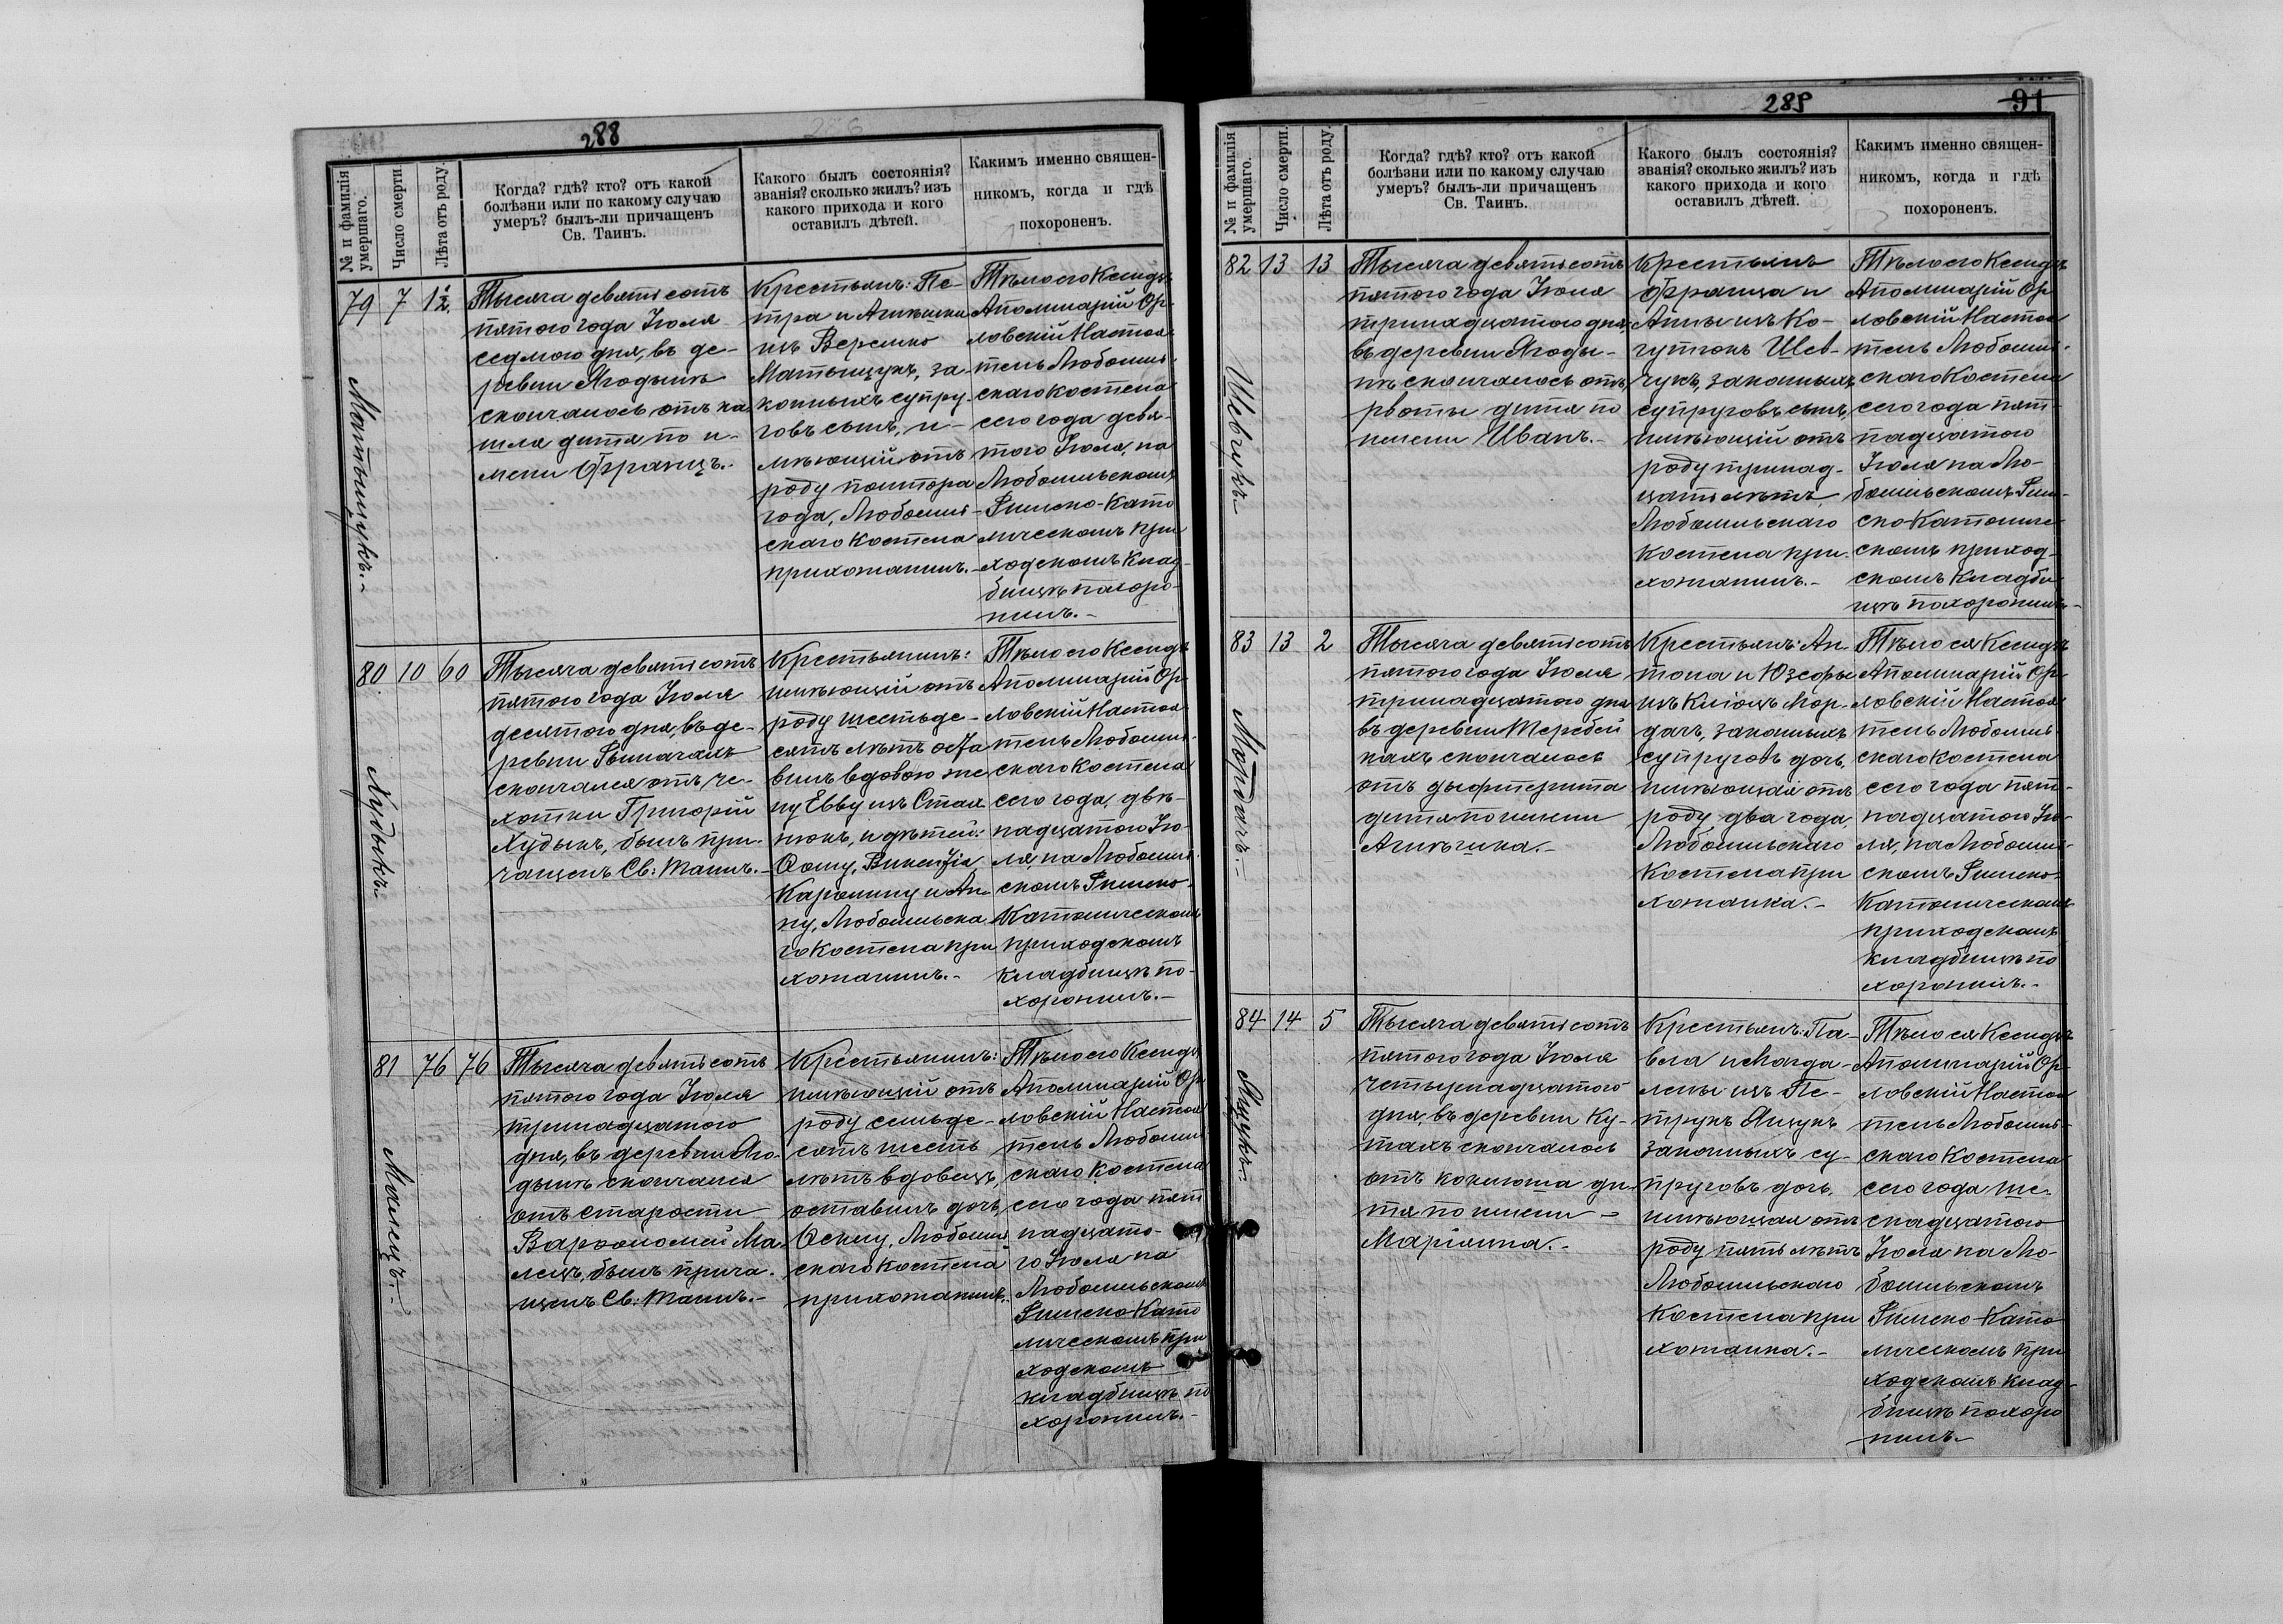 288
№ и фамилія умершаго.
Число смерти.
Лѣта отъ роду.
Когда? гдѣ? кто? отъ какой
болѣзни или по какому случаю
умеръ? былъ-ли причащенъ
Св. Таинъ.
Какого былъ состоянія?
званія? сколько жилъ? изъ
какого прихода и кого
оставилъ дѣтей.
Какимъ именно священ-
никомъ, когда и гдѣ
похороненъ.
79
Матыщукъ.-
7
1½.
Тысяча девятьсотъ
пятого года Іюля
седмого дня, въ де-
ревни Ягодынѣ
скончалось отъ ка
шля дитя по и-
мени Францъ.-
Крестьянъ: Пе-
тра и Агнѣшки
изъ Веремко
Матыщукъ, за-
конныхъ супру-
говъ сынъ, и-
мѣющій отъ
роду полтора
года, Любомль-
скаго Костела
прихожанинъ.-
Тѣло его Ксендзъ
Аполинарій Ор
ловскій Настоя
тель Любомль-
скаго Костела
сего года девя-
того Іюля, на
Любомльскомъ
Римско-Като
лическомъ при
ходскомъ клад-
бищѣ похоро-
нилъ.-
80
Худыкъ
10
60
Тысяча девятьсотъ
пятого года Іюля
десятого дня, въ де-
ревни Рымачахъ
скончался отъ че-
хотки Григорій
Худыкъ, былъ при-
чащенъ Св: Таинъ.-
Крестьянинъ:
имѣющій отъ
роду шестьде-
сятъ лѣтъ оста
вилъ вдовою же
ну Евву изъ Стал
нюкъ, и дѣтей:
Ѳому, Викентія
Каролину и Ан
ну, Любомльска
го Костела при
хожанинъ.-
Тѣло его Ксендзъ
Аполинарій Ор
ловскій Настоя
тель Любомль-
скаго Костела
сего года, двѣ-
надцатого Ію-
ля, на Любомль
скомъ Римско-
Католическомъ
приходскомъ
кладбищѣ по-
хоронилъ.-
81
Малецъ.-
76
76
Тысяча девятьсотъ
пятого года Іюля
тринадцатого
дня, въ деревни Яго-
дынѣ скончался
отъ старости
Варѳоломей Ма-
лецъ, былъ прича-
щенъ Св: Таинъ.-
Крестьянинъ:
имѣющій отъ
роду семьде-
сятъ шесть
лѣтъ вдовецъ,
оставилъ дочь
Ѳеклу, Любомль
скаго Костела
прихожанинъ.
Тѣло его Ксендзъ
Аполинарій Ор
ловскій Настоя
тель Любомль
скаго Костела
сего года пят
надцато-
го Іюля на
Любомльскомъ
Римско-Като
лическомъ при
ходскомъ
кладбищѣ по
хоронилъ.-
289
91
№ и фамилія умершаго.
Число смерти.
Лѣта отъ роду.
Когда? гдѣ? кто? отъ какой
болѣзни или по какому случаю
умеръ? былъ-ли причащенъ
Св. Таинъ.
Какого былъ состоянія?
званія? сколько жилъ? изъ
какого прихода и кого
оставилъ дѣтей.
Какимъ именно священ-
никомъ, когда и гдѣ
похороненъ.
82
Шевчукъ
13
13
Тысяча девятьсотъ
пятого года Іюля
тринадцатого дня,
въ деревни Ягоды-
нѣ скончалось отъ
рвоты дитя по
имени Иванъ.-
Крестьянъ
Франца и
Анны изъ Ко-
Шев-
чукъ, законныхъ
супруговъ сынъ,
имѣющій отъ
роду тринад-
цать лѣтъ,
Любомльскаго
Костела при-
хожанинъ.-
Тѣло его Ксендзъ
Аполинарій Ор
ловскій Настоя
тель Любомль-
скаго Костела
сего года пят
надцатого
Іюля на Лю-
бомльскомъ Рим-
ско-Католиче-
скомъ приход-
скомъ кладби-
щѣ похоронилъ-
83
Мордачъ.-
13
2
Тысяча девятьсотъ
пятого года Іюля
тринадцатого дня
въ деревни Теребей
кахъ скончалось
отъ дыфтерита
дитя по имени
Агнѣшка.-
Крестьянъ: Ан-
тона и Юзефы
изъ Мор-
дачъ, законныхъ
супруговъ дочь,
имѣющая отъ
роду два года,
Любомльскаго
Костела при
хожанка.-
Тѣло ея Ксендзъ
Аполинарій Ор
ловскій Настоя
тель Любомль-
скаго Костела
сего года пят-
надцатого Ію-
ля, на Любомль-
скомъ Римско-
Католическомъ
приходскомъ
кладбищѣ по
хоронилъ.-
84
Ящукъ.-
14
5
Тысяча девятьсотъ
пятого года Іюля
четырнадцатого
дня, въ деревни Ку-
тахъ скончалось
отъ коклюша ди-
тя по имени -
Маріянна.-
Крестьянъ: Па-
вла и Магда-
лены изъ Пе-
трукъ Ящукъ
законныхъ су-
пруговъ дочь,
имѣющая отъ
роду пять лѣтъ
Любомльскаго
Костела при
хожанка.-
Тѣло ея Ксендзъ
Аполинарій Ор-
ловскій Настоя
тель Любомль-
скаго Костела
сего года ше-
снадцатого
Іюля на Лю-
бомльскомъ
Римско-Като
лическомъ при
ходскомъ клад-
бищѣ похоро
нилъ.-